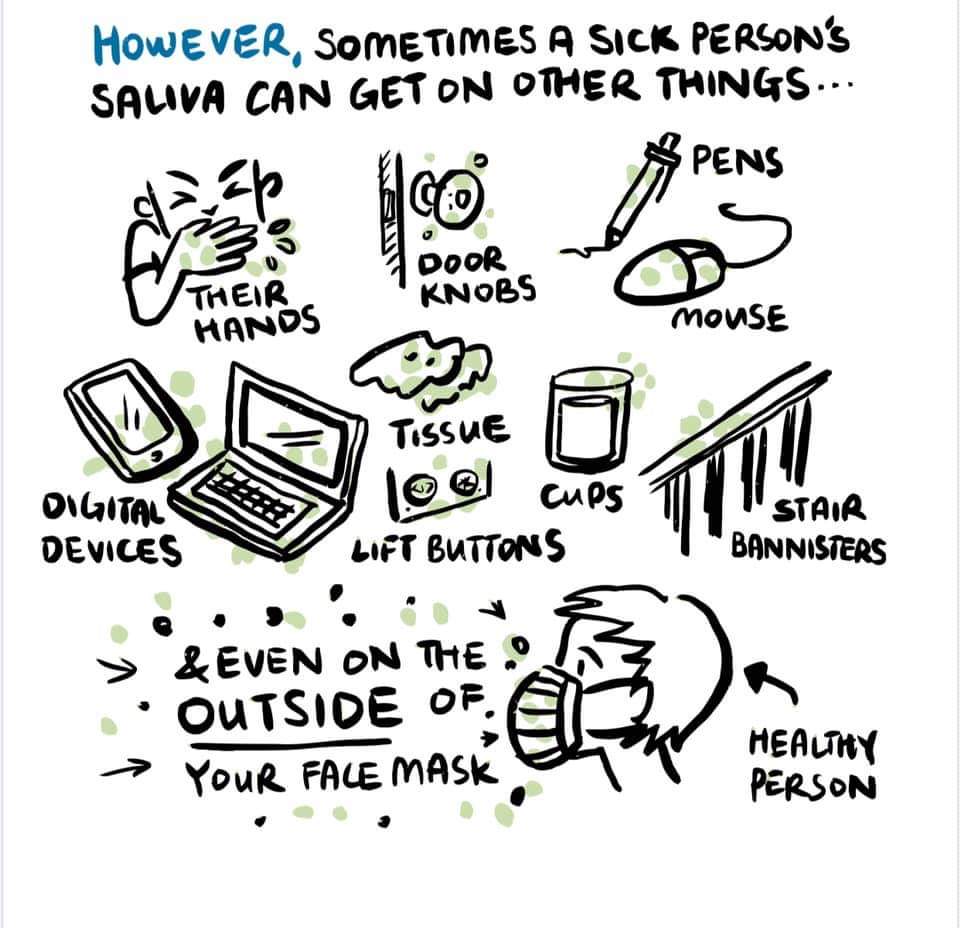 HOWEVER, SOMETIMES A SICK PERSON'S
SALIVA CAN GET ON OTHER THINGS...
THEIR
HANDS
DOOR
KNOBS
PENS
MOUSE
DIGITAL
DEVICES
TISSUE
LIFT BUTTONS
CUPS
STAIR
BANNISTERS
& EVEN ON THE
OUTSIDE OF
YOUR FACE MASK
HEALTHY
PERSON